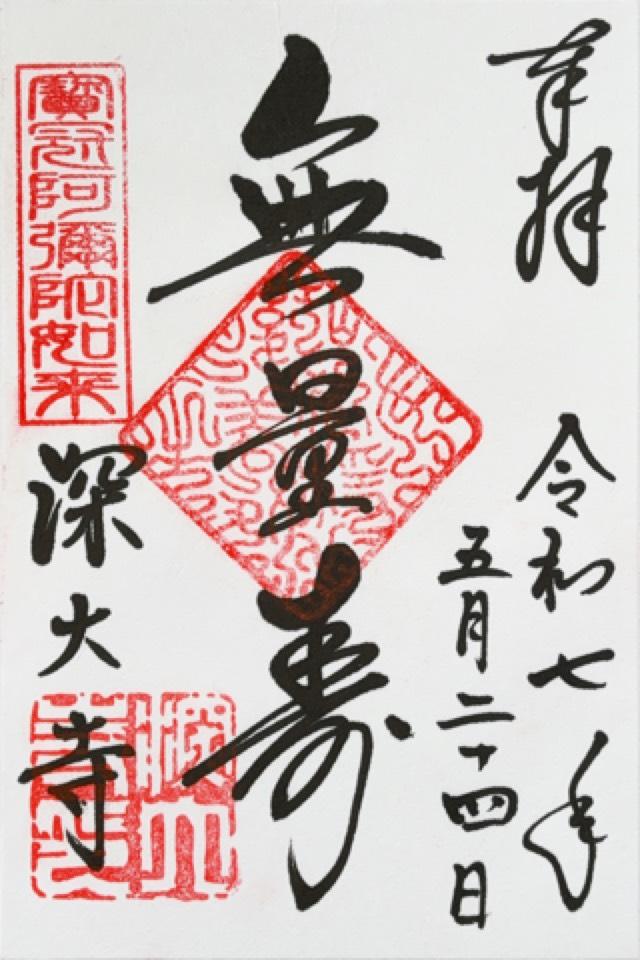 奉拝
令和七年
五月二十四日
無量寿
寶冠阿彌陀如来
深大寺